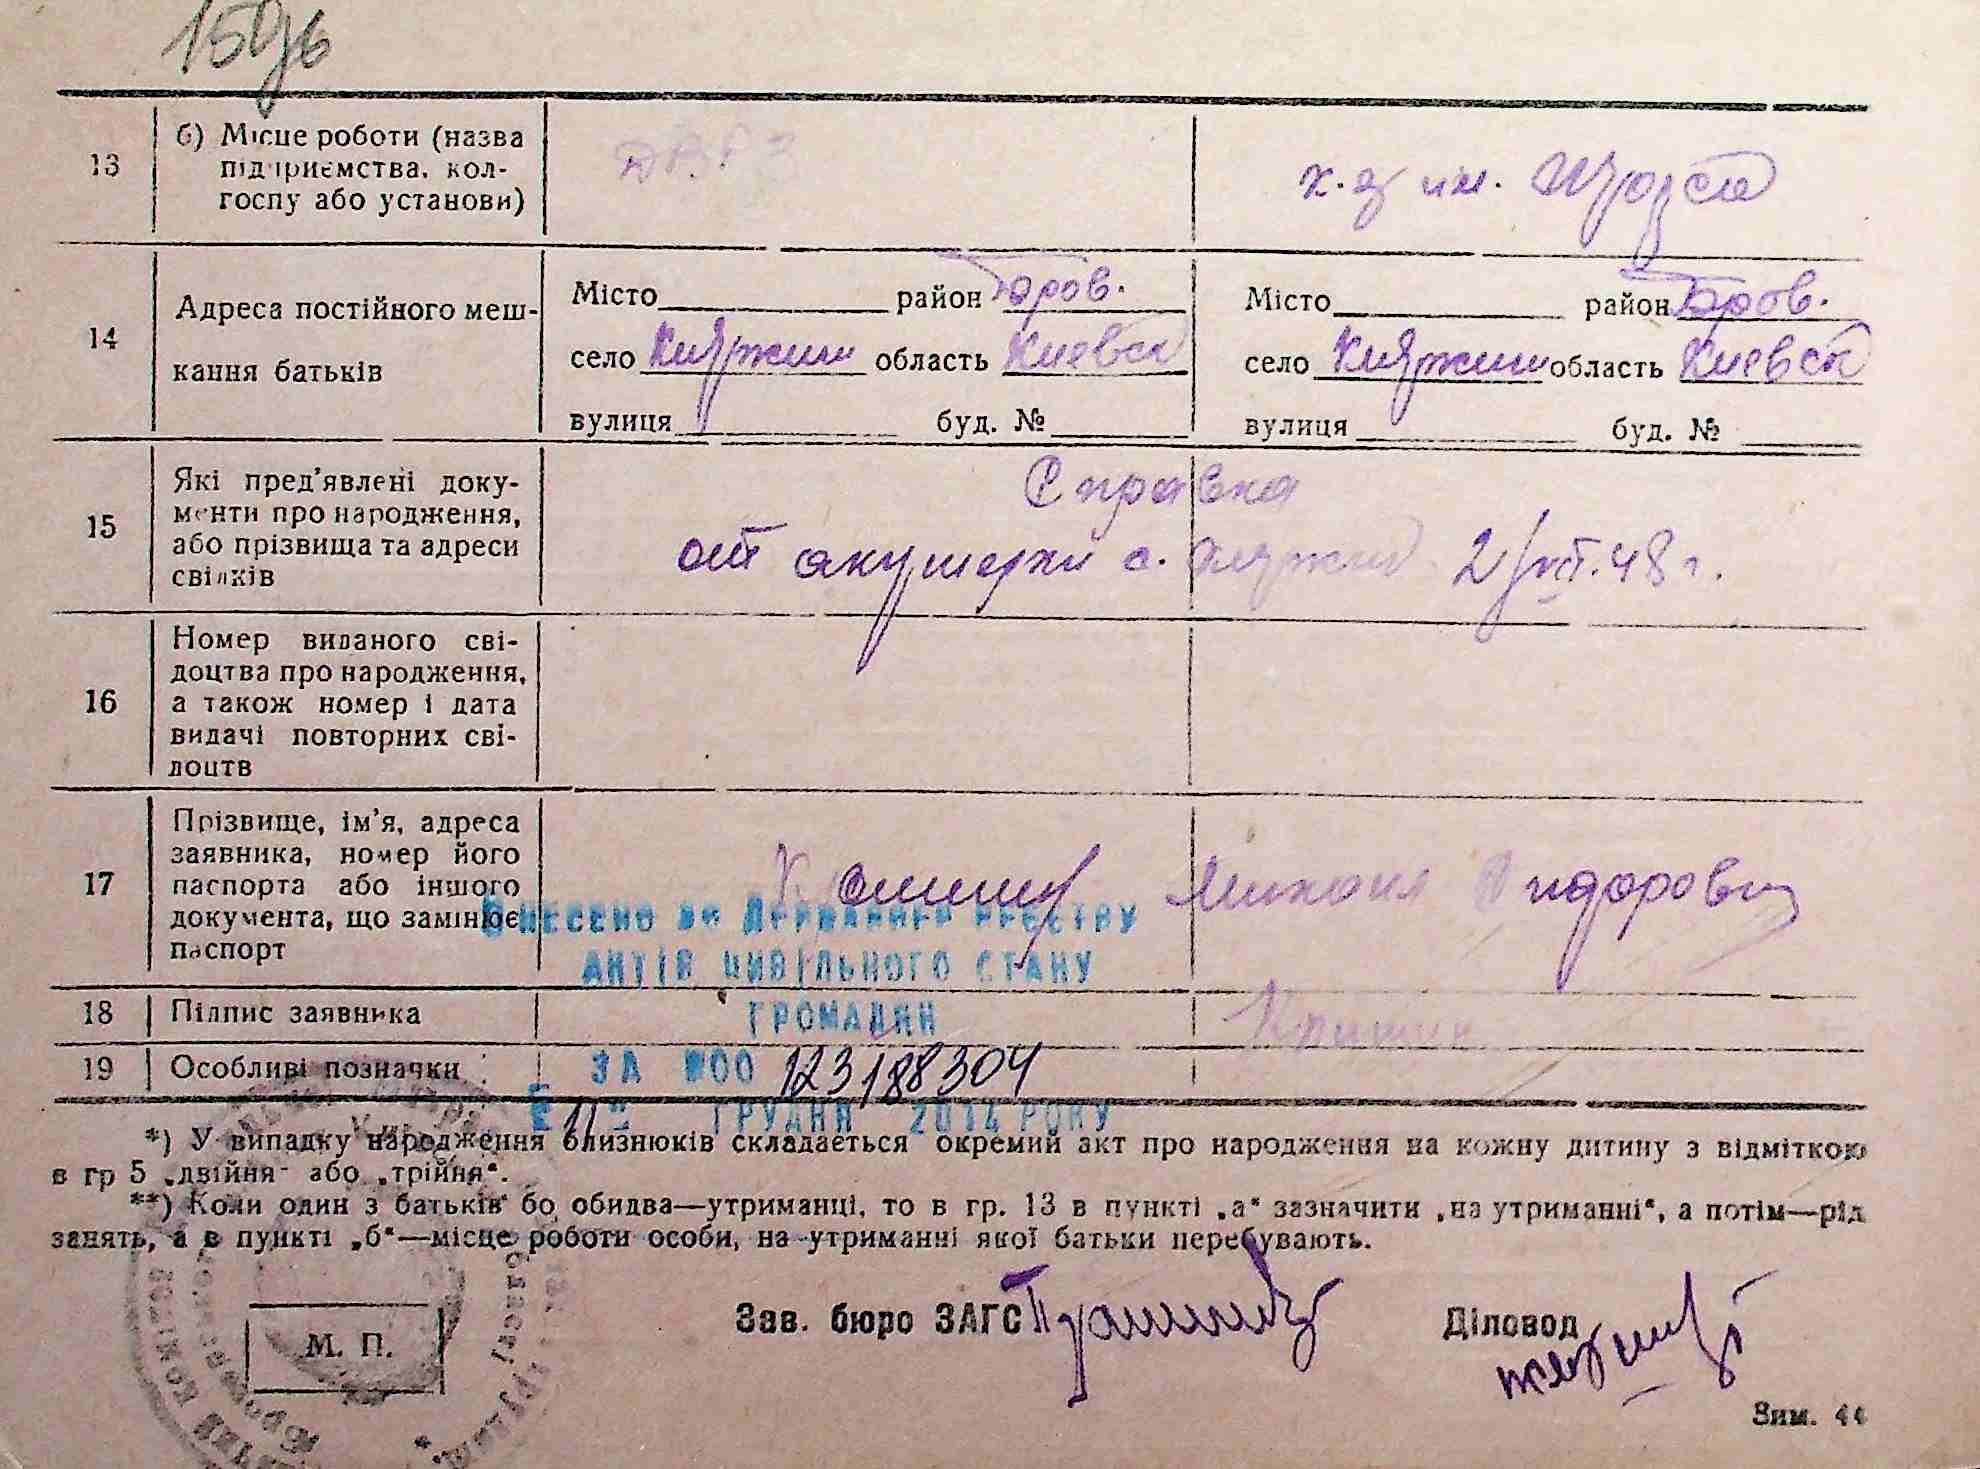 13
б) Місце роботи (назва
підприємства, кол-
госпу або установи)
ДВРЗ
к-з им. Щорса
14
Адреса постійного меш-
кання батьків
Місто район Бров.
село Княжичи область Киевск
вулиця буд. №
Місто район Бров.
село Княжичи область Киевск
вулиця буд. №
15
Які пред'явлені доку-
менти про народження,
або прізвища та адреси
свідків
Справка
от акушерки с. 2/VII.48 г.
16
Номер виданого сві-
доцтва про народження,
а також номер і дата
видачі повторних сві-
доцтв
17
Прізвище, ім'я, адреса
заявника, номер його
паспорта або іншого
документа, що замінює
паспорт
Михаил Сидорович
Внесено до Державного реєстру
актів цивільного стану
громадян
18
Підпис заявника
19
Особливі позначки
ЗА №00 123188304
ГРУДНЯ 2014 РОКУ
*) У випадку народження близнюків складається окремий акт про народження на кожну дитину з відміткою
в гр 5 „двійня" або „трійня".
**) Коли один з батьків бо обидва—утриманці, то в гр. 13 в пункті „а" зазначити „на утриманні", а потім—рід
занять, а в пункті „б"—місце роботи особи, на утриманні якої батьки перебувають.
М. П.
Зав. бюро ЗАГС
Діловод
Зим. 44